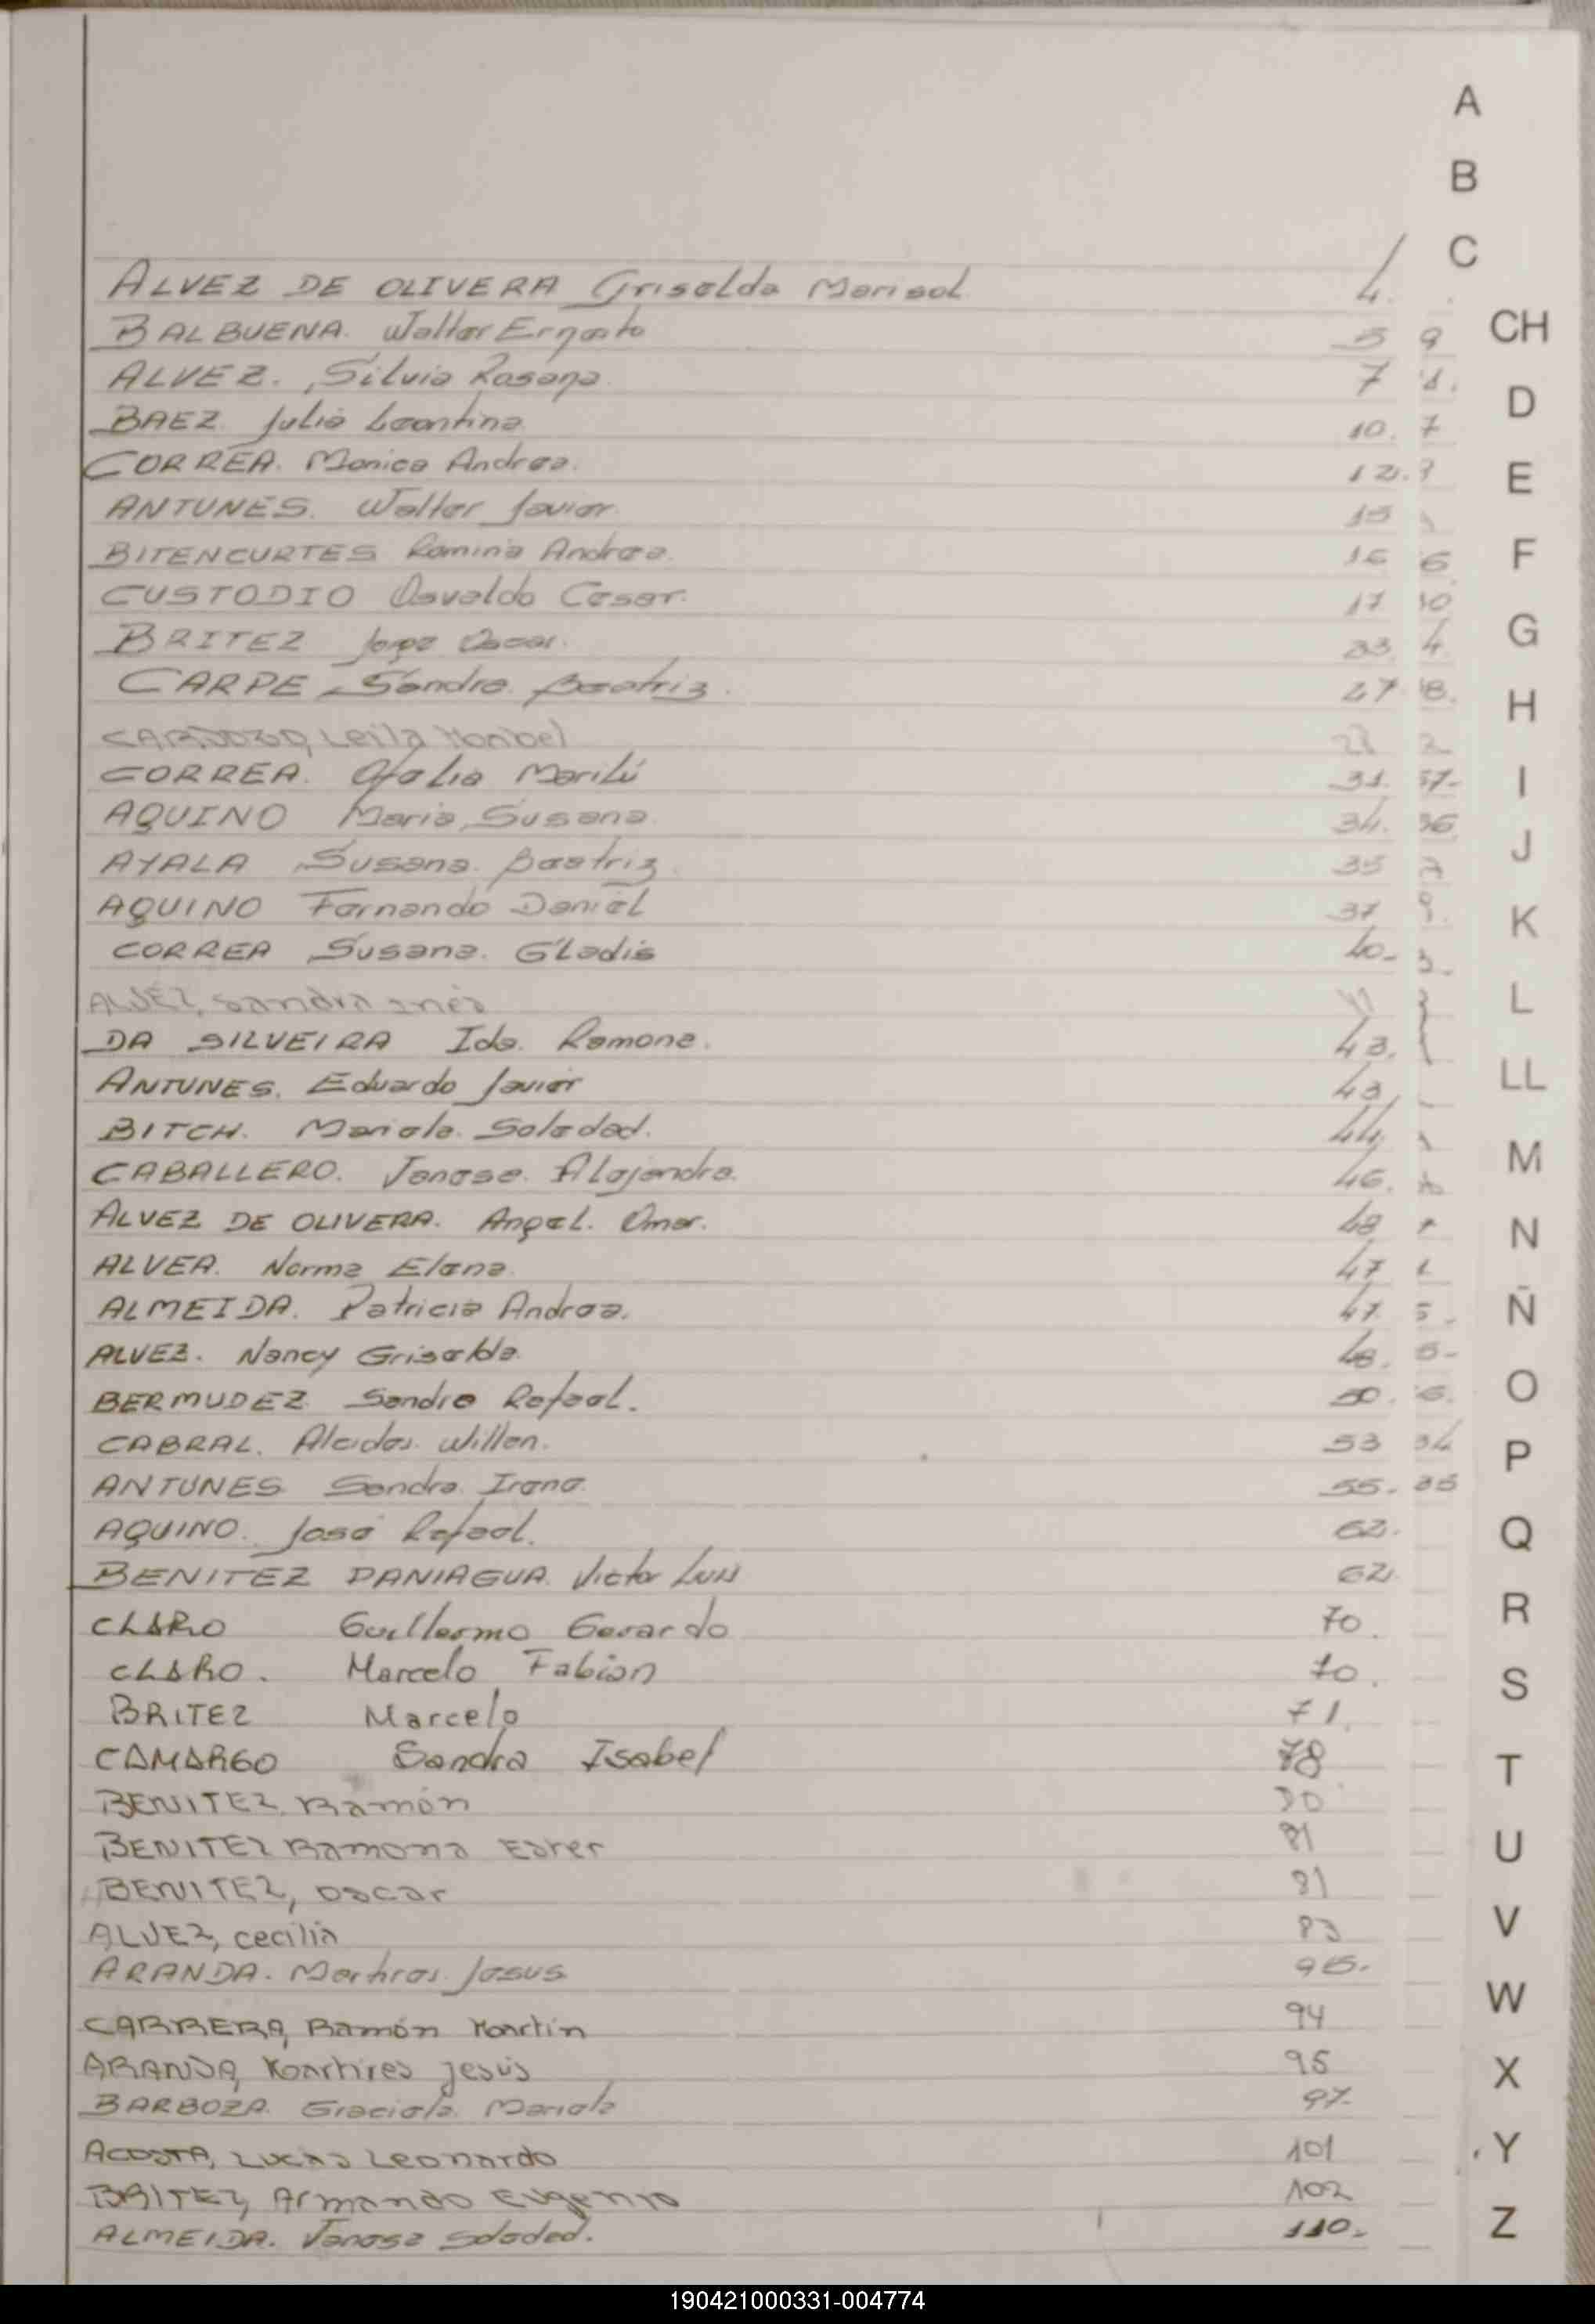 A
B
C
ALVEZ DE OLIVERA Griselda Marisol 4.
BALBUENA. Walter Ernesto 5 9 CH
ALVEZ. Silvia Rosana 7
BAEZ Julia Leontina 10. 7 D
CORREA. Monica Andrea. 12. E
ANTUNES. Walter Javier 15
BITENCURTES Romina Andrea. 16 6 F
CUSTODIO Osvaldo Cesar. 17 10
BRITEZ Jorge Oscar. 23 4 G
CARPE Sandra Beatriz. 27 8. H
CARDOZO, Leila Maribel 2
CORREA. Ofelia Marilú 31. I
AQUINO Maria Susana 34. 36
AYALA Susana. Beatriz 35 J
AQUINO Fernando Daniel 37 K
CORREA Susana. Gladis 40-
ALVEZ, Sandra Inés 41 L
DA SILVEIRA Ida. Ramona. 43.
ANTUNES. Eduardo Javier 43 LL
BITCH. Mariela. Soledad. 44
CABALLERO. Vanesa. Alejandra. 46. M
ALVEZ DE OLIVERA. Angel. Omar. 48 N
ALVEA. Norma Elena 47
ALMEIDA. Patricia Andrea. 47 5. Ñ
ALVEZ. Nancy Griselda. 48. 5-
BERMUDEZ Sandro Rafael. 50. 6. O
CABRAL. Alcides. Willen. 53 34 P
ANTUNES Sandra. Irene. 55. 35
AQUINO. José Rafael. 62. Q
BENITEZ PANIAGUA. Victor Luis 62
CLARO Guillermo Gerardo 70. R
CLARO. Marcelo Fabian 70. S
BRITEZ Marcelo 71.
CAMARGO Sandra Isabel 78 T
BENITEZ, Ramón 80
BENITEZ Ramona Ester 81 U
BENITEZ, Oscar 81
ALVEZ, cecilia 83 V
ARANDA. Martires. Jesus 95.
CABRERA, Ramón Martín 94 W
ARANDA, Martires Jesús 95 X
BARBOZA. Graciela. Mariela 97-
ACOSTA, Lucas Leonardo 101 Y
BRITEZ, Armando Eugenio 102
ALMEIDA. Vanesa Soledad. 110. Z
190421000331-004774